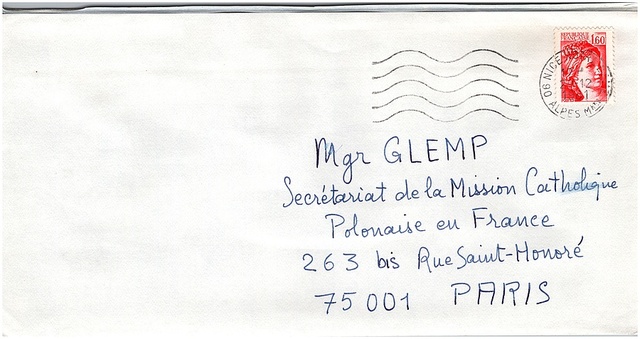 REPUBLIQUE FRANÇAISE 1,60
06 NICE
12
ALPES MMES
Mgr GLEMP
Secrétariat de la Mission Catholique
Polonaise en France
263 bis Rue Saint-Honoré
75001 PARIS